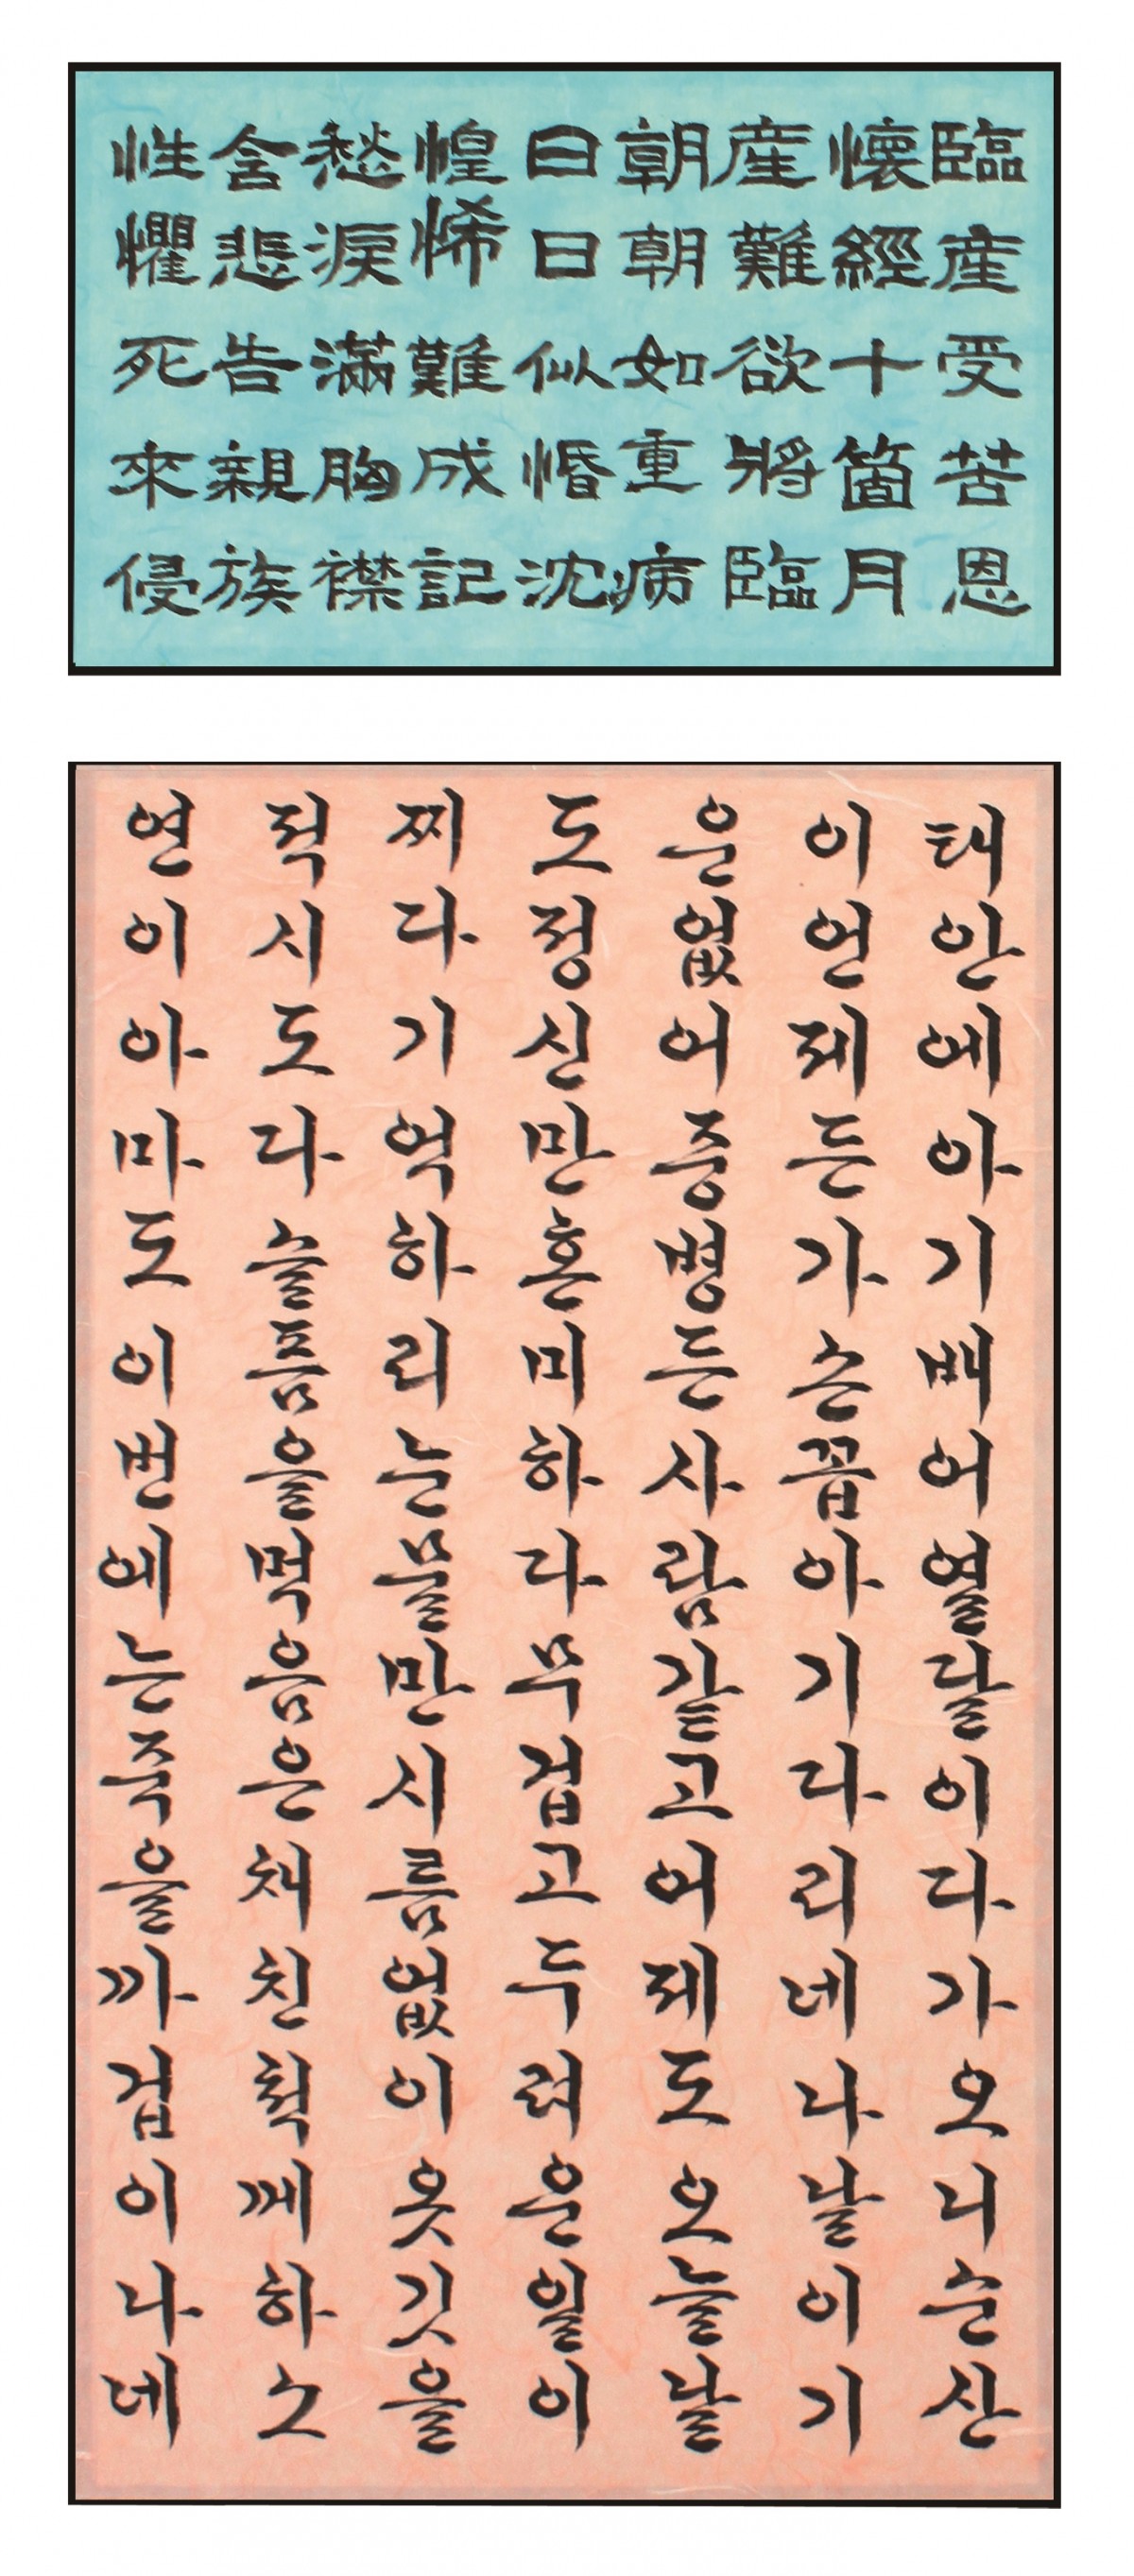 臨産受苦恩
懷經十箇月
産難欲將臨
朝朝如重病
日日似惛沈
惶悕難成記
愁淚滿胸襟
含悲告親族
性懼死來侵
태안에아기배어열달이다가오니순산
이언제든가손꼽아기다리네나날이기
운없어중병든사람같고어제도오늘날
도정신만혼미하다무겁고두려운일이
찌다기억하리눈물만시름없이옷깃을
적시도다슬픔을먹음은채친척께하소
연이아마도이번에는죽을까겁이나네